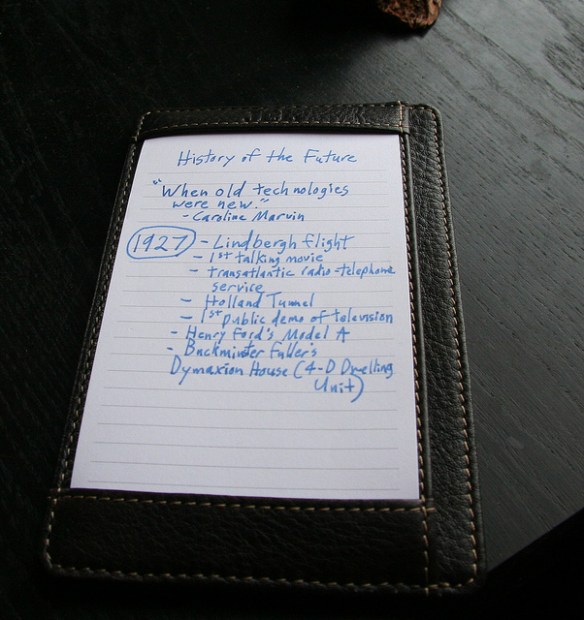 History of the Future
"When old technologies
were new."
- Caroline Marvin
1927 - Lindbergh flight
- 1st talking movie
- transatlantic radio-telephone
service
- Holland Tunnel
- 1st public demo of television
- Henry Ford's Model A
- Buckminster Fuller's
Dymaxion House (4-D Dwelling
Unit)